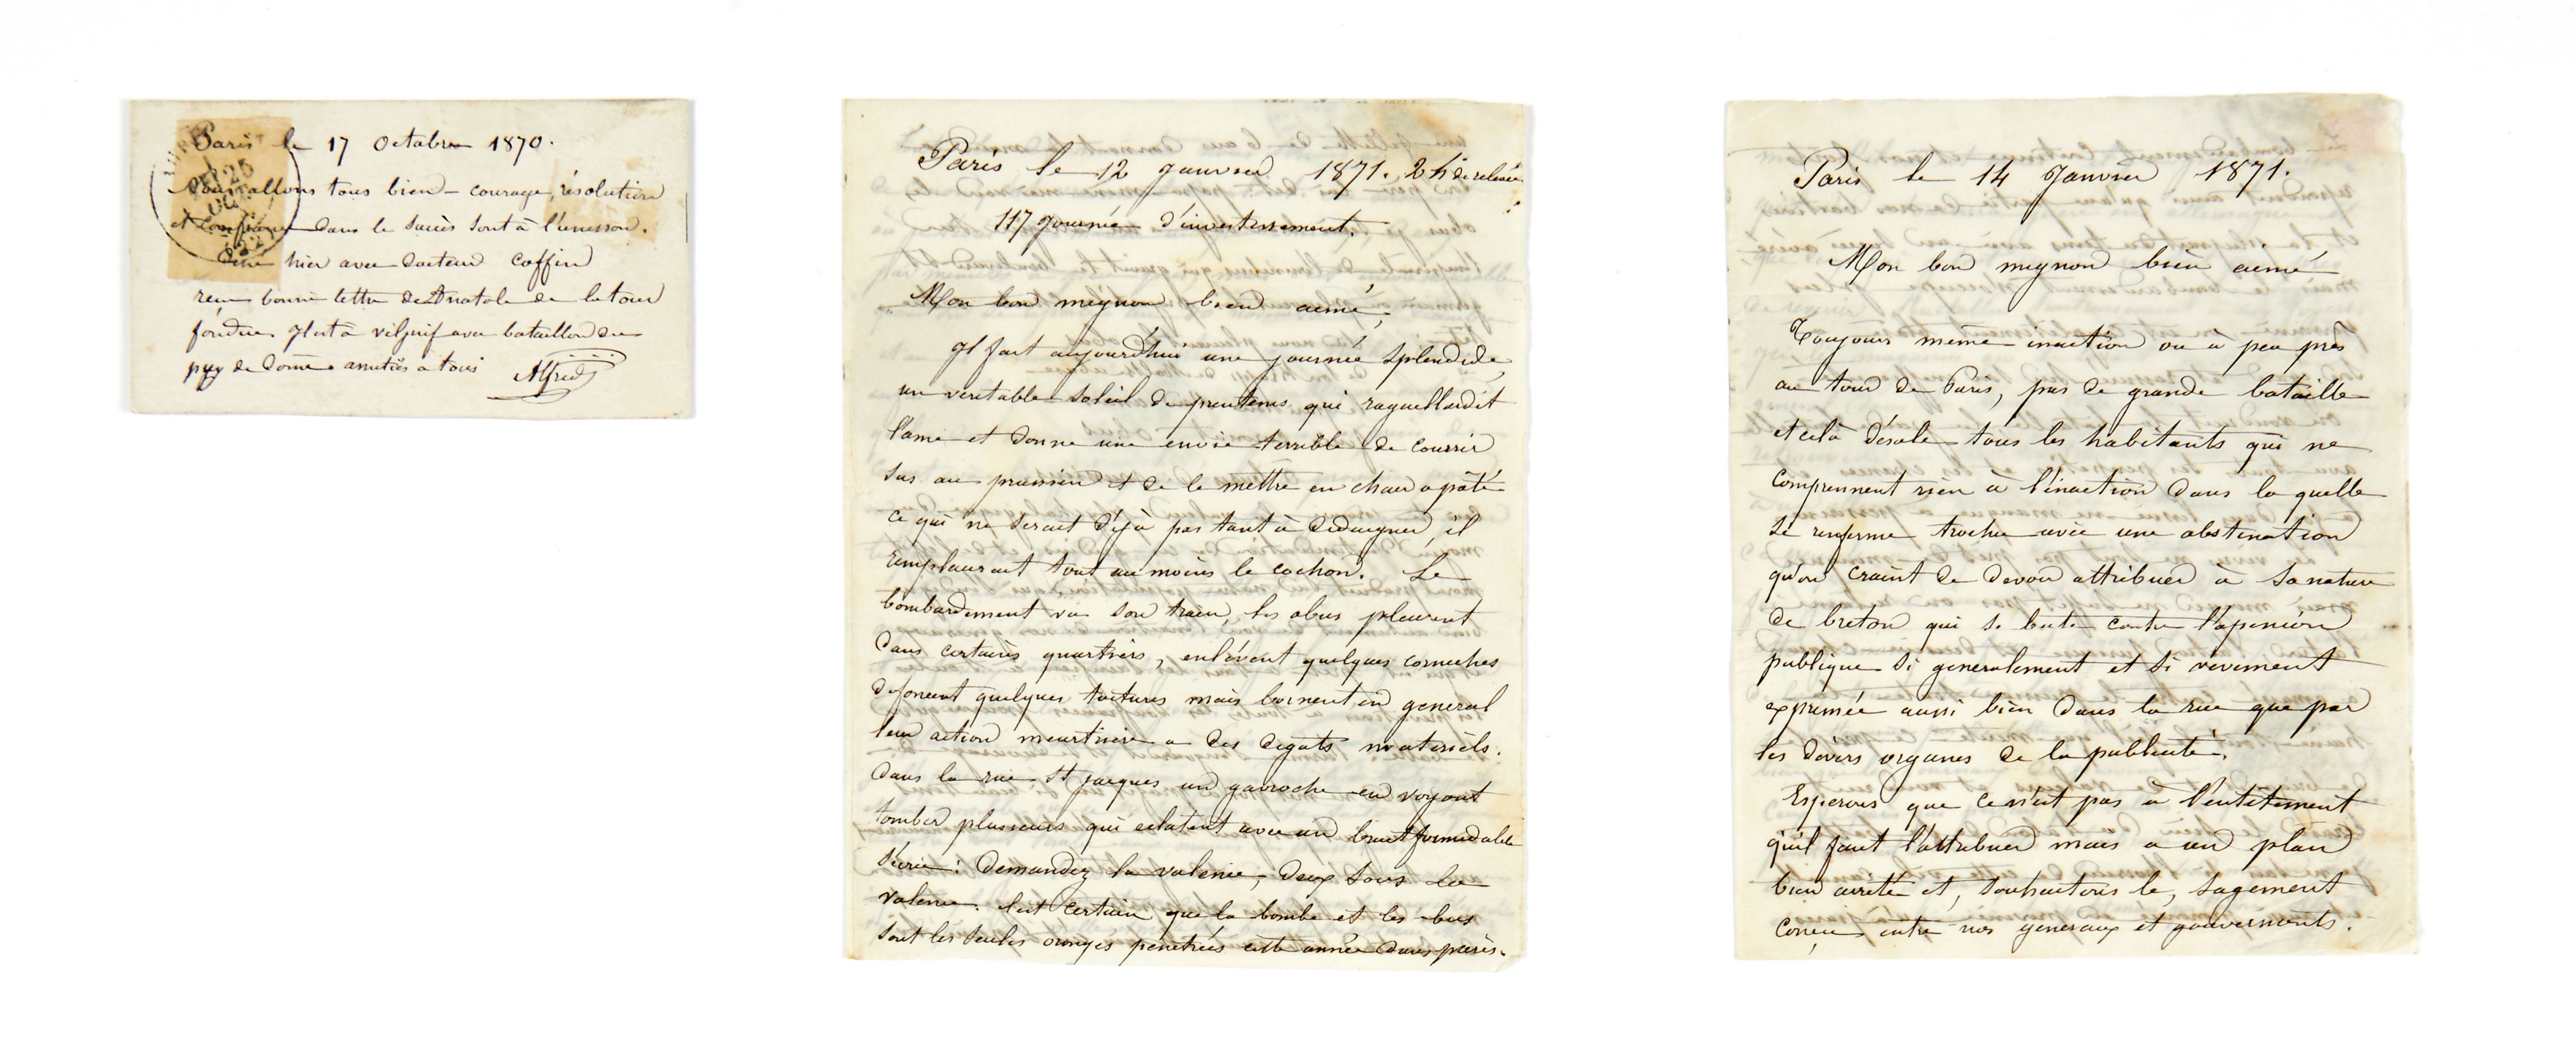 Paris le 17 Octobre 1870.
Nous allons tous bien – courage, résolution
et confiance dans le succès sont à l'unisson.
Diné hier avec docteur Coffin
reçu bonne lettre de Anatole de latour
fondue. Il est à viljuif avec bataillon du
puy de Dome amitiés a tous Alfred
Paris le 12 Janvier 1871. 2 h de relevée
117 Journée d'investissement.
Mon bon mignon bien aimé,
Il fait aujourd'hui une journée splendide,
un veritable soleil de printems qui
l'ame et donne une envie terrible de courrir
sus au prussien et de le mettre en chaud a pâté
ce qui ne serait déjà pas tant à dédaigner, il
remplacerait tout au moins le cochon. Le
bombardement va son train, les obus pleuvent
dans certains quartiers, enlévent quelques corniches
defoncent quelques toitures mais bornent en general
leur action meurtriere a des degats materiels.
Dans la rue St jacques un gavroche en voyant
tomber plusieurs qui eclatent avec un bruit formidable
s'écrie: Demandez la valence, deux sous la
valence. C'est certain que la bombe et les obus
sont les seules oranges penetrées cette année dans paris.
Paris le 14 Janvier 1871.
Mon bon mignon bien aimé
Toujours même inaction ou à peu près
au tour de Paris, pas de grande bataille
et celà désole tous les habitants qui ne
comprennent rien à l'inaction dans la quelle
se renferme trochu avec une obstination
qu'on craint de devoir attribuer à sa nature
de breton qui se bute contre l'opinion
publique si generalement et si vivement
exprimée aussi bien dans la rue que par
les divers organes de la publicité.
Esperons que ce n'est pas à l'entêtement
qu'il faut l'attribuer mais a un plan
bien arreté et, souhaitons le, sagement
conçu entre nos generaux et gouvernants.